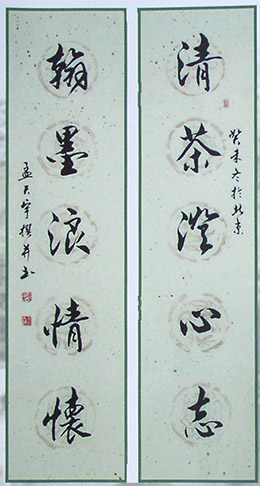 清茶澄心志
癸未冬於北京
翰墨浪情懷
孟天宇撰并书